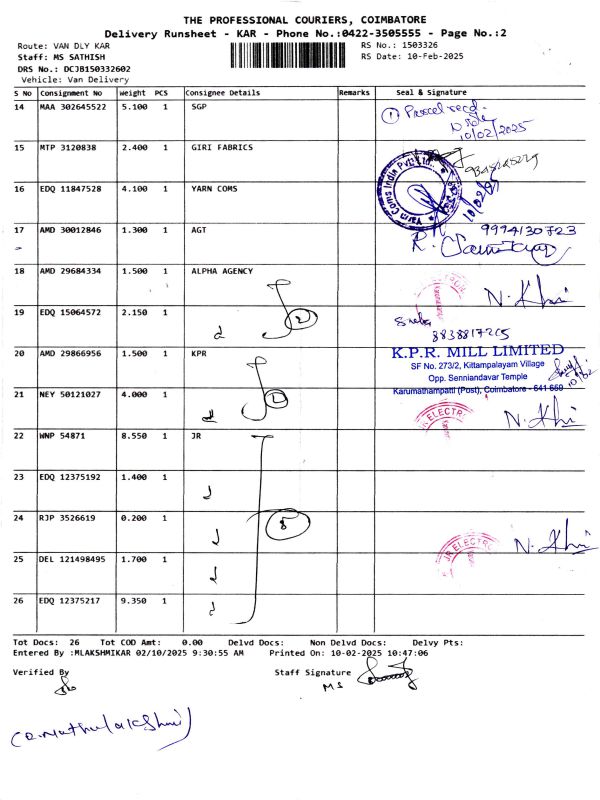 THE PROFESSIONAL COURIERS, COIMBATORE
Delivery Runsheet - KAR - Phone No.:0422-3505555 - Page No.:2
Route: VAN DLY KAR
RS No.: 1503326
Staff: MS SATHISH
RS Date: 10-Feb-2025
DRS No.: DCJB150332602
Vehicle: Van Delivery
S No Consignment No Weight PCS Consignee Details Remarks Seal & Signature
14 MAA 302645522 5.100 1 SGP
10/02/2025
15 MTP 3120838 2.400 1 GIRI FABRICS
16 EDQ 11847528 4.100 1 YARN COMS
Yarn Coms India Pvt Ltd.
17 AMD 30012846 1.300 1 AGT 9994130723
18 AMD 29684334 1.500 1 ALPHA AGENCY
N. Khi
19 EDQ 15064572 2.150 1
2
20 AMD 29866956 1.500 1 KPR
K.P.R. MILL LIMITED
SF No. 273/2, Kittampalayam Village
Opp. Senniandavar Temple
Karumathampatti (Post), Coimbatore - 641 659
10/02
21 NEY 50121027 4.000 1
N. Khi
22 WNP 54871 8.550 1 JR
23 EDQ 12375192 1.400 1
24 RJP 3526619 0.200 1
JR ELECTRO
N. Khi
25 DEL 121498495 1.700 1
26 EDQ 12375217 9.350 1
Tot Docs: 26 Tot COD Amt: 0.00 Delvd Docs: Non Delvd Docs: Delvy Pts:
Entered By :MLAKSHMIKAR 02/10/2025 9:30:55 AM Printed On: 10-02-2025 10:47:06
Verified By
Staff Signature
MS